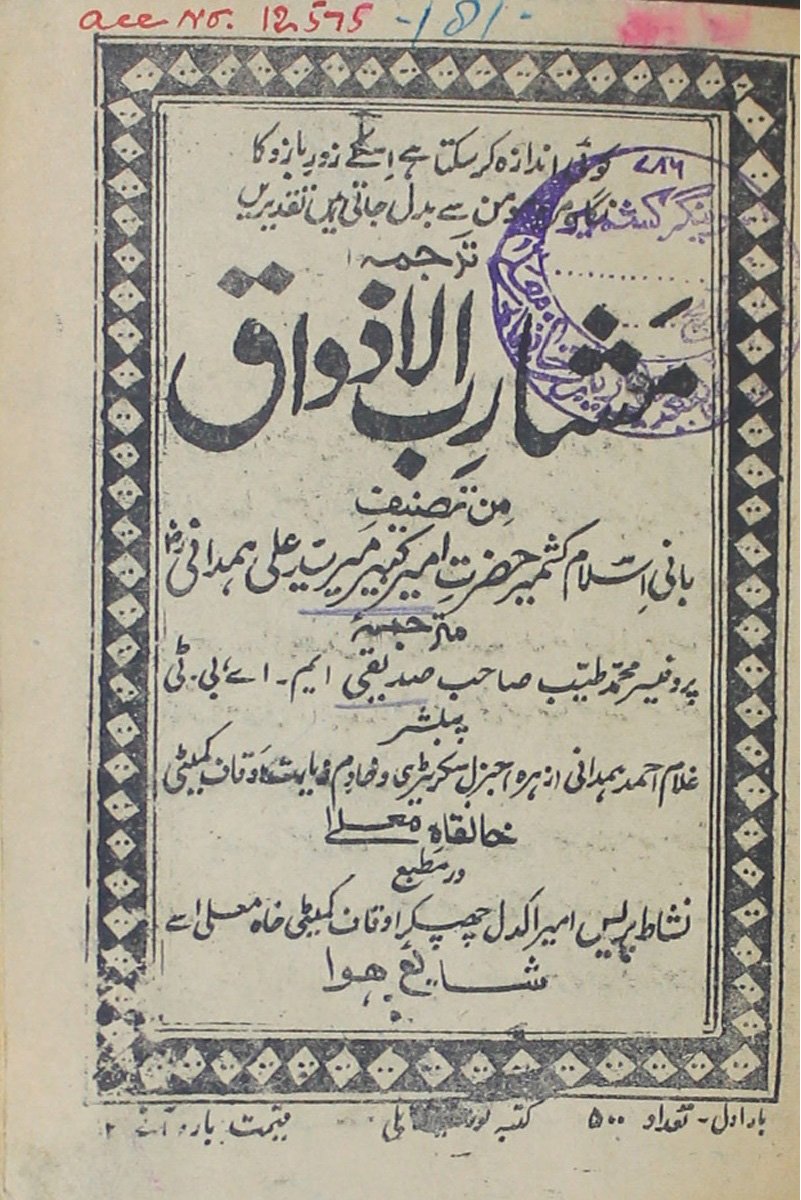 acc No. 12575 -181-
۷۸۶
کوئی اندازہ کر سکتا ہے اسکے زورِ بازو کا
نگاہِ مردِ مومن سے بدل جاتی ہیں تقدیریں
ترجمہ
مشارب الاذواق
مِن تصنیف
بانی اسلام کشمیر حضرتِ امیر کبیر میر سید علی ہمدانی رض
مترجمہ
پروفیسر محمد طیّب صاحب صدیقی ایم۔ اے، بی۔ ٹی
پبلشر
غلام احمد ہمدانی از ہرہ جنرل سکریٹری و خادم اوقاف کمیٹی
خانقاہ معلےٰ
در مطبع
نشاط پریس امیرا کدل چھپکر اوقاف کمیٹی خاہ معلی سے
شایع ہوا
بار اول - تعداد ۵۰۰ کتبہ قیمت بارہ آنے ۱۲